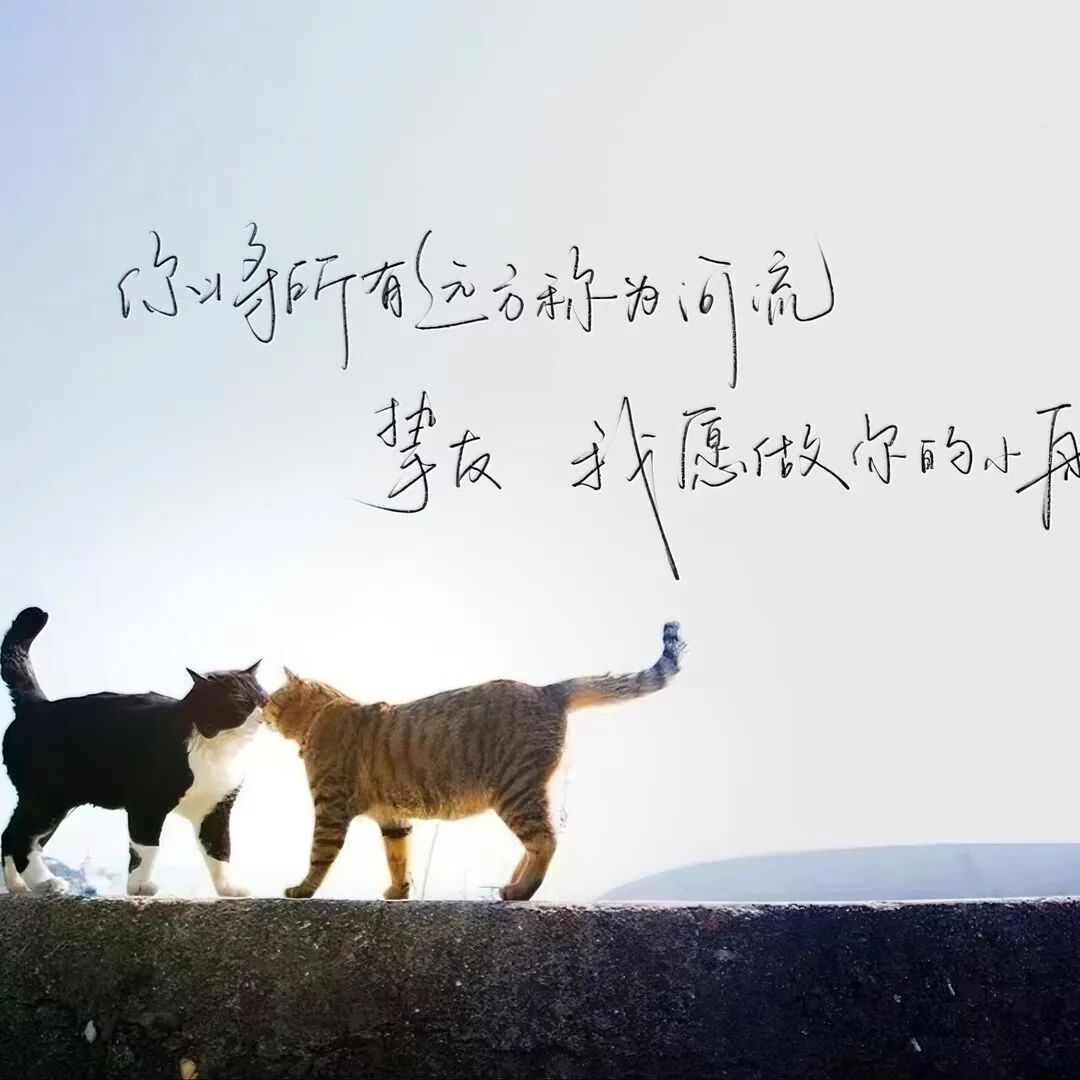 你将所有远方称为河流
挚友 我愿做你的小